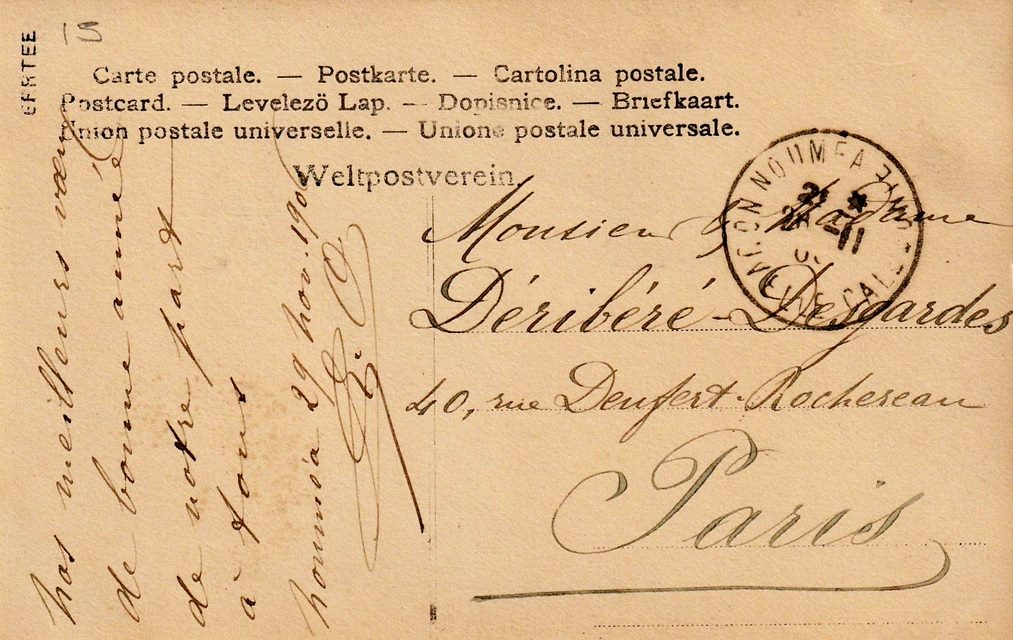 15
Carte postale. — Postkarte. — Cartolina postale.
Postcard. — Levelezö Lap. — Dopisnice. — Briefkaart.
Union postale universelle. — Unione postale universale.
Weltpostverein.
NOUMEA
Monsieur & Madame
Déribéré-Desgardes
40, rue Denfert-Rochereau
Paris
Nos meilleurs vœux
de bonne année
de notre part
à tous
Nouméa 29 nov. 190